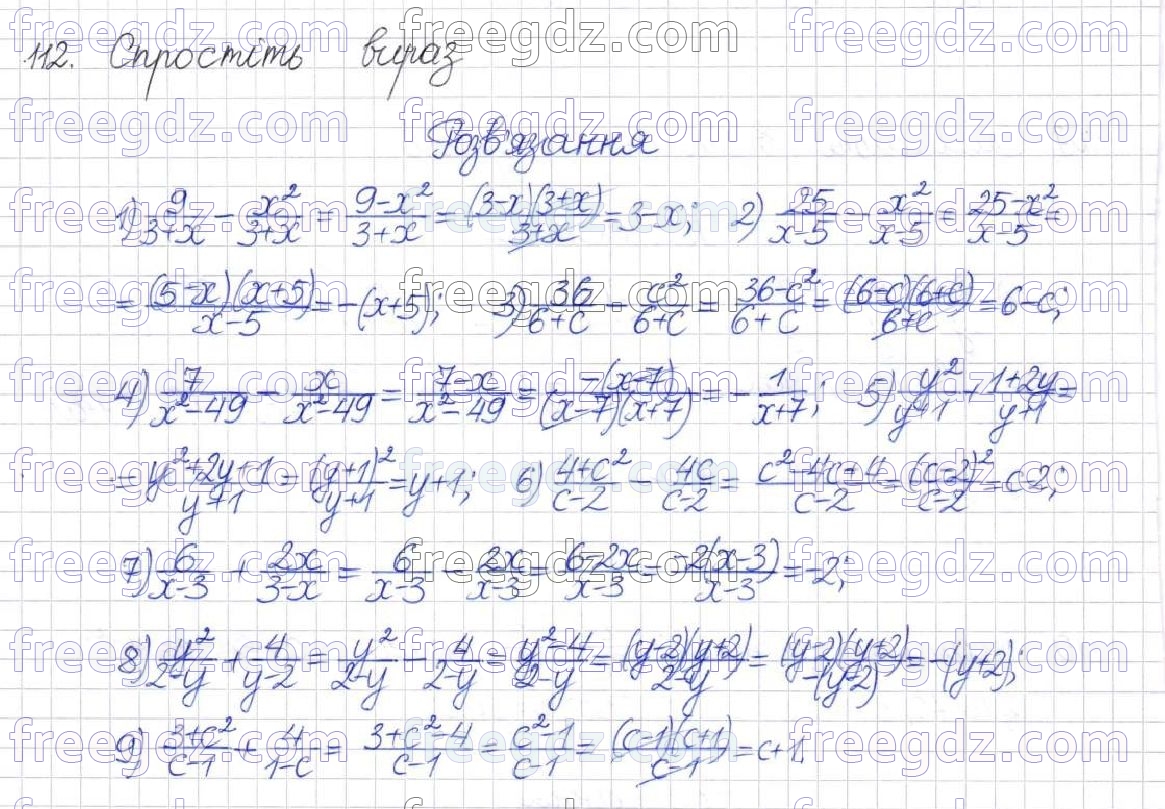 112. Спростіть вираз
Розв'язання
1) 9/(3+x) - x²/(3+x) = (9-x²)/(3+x) = (3-x)(3+x)/(3+x) = 3-x; 2) 25/(x-5) - x²/(x-5) = (25-x²)/(x-5) =
= (5-x)(x+5)/(x-5) = -(x+5); 3) 36/(6+c) - c²/(6+c) = (36-c²)/(6+c) = (6-c)(6+c)/(6+c) = 6-c;
4) 7/(x²-49) - x/(x²-49) = (7-x)/(x²-49) = -(x-7)/((x-7)(x+7)) = -1/(x+7); 5) y²/(y+1) + (1+2y)/(y+1) =
= (y²+2y+1)/(y+1) = (y+1)²/(y+1) = y+1; 6) (4+c²)/(c-2) - 4c/(c-2) = (c²-4c+4)/(c-2) = (c-2)²/(c-2) = c-2;
7) 6/(x-3) + 2x/(3-x) = 6/(x-3) - 2x/(x-3) = (6-2x)/(x-3) = -2(x-3)/(x-3) = -2;
8) y²/(2-y) + 4/(y-2) = y²/(2-y) - 4/(2-y) = (y²-4)/(2-y) = (y-2)(y+2)/(2-y) = (y-2)(y+2)/(-(y-2)) = -(y+2);
9) (3+c²)/(c-1) + 4/(1-c) = (3+c²-4)/(c-1) = (c²-1)/(c-1) = (c-1)(c+1)/(c-1) = c+1.
freegdz.com